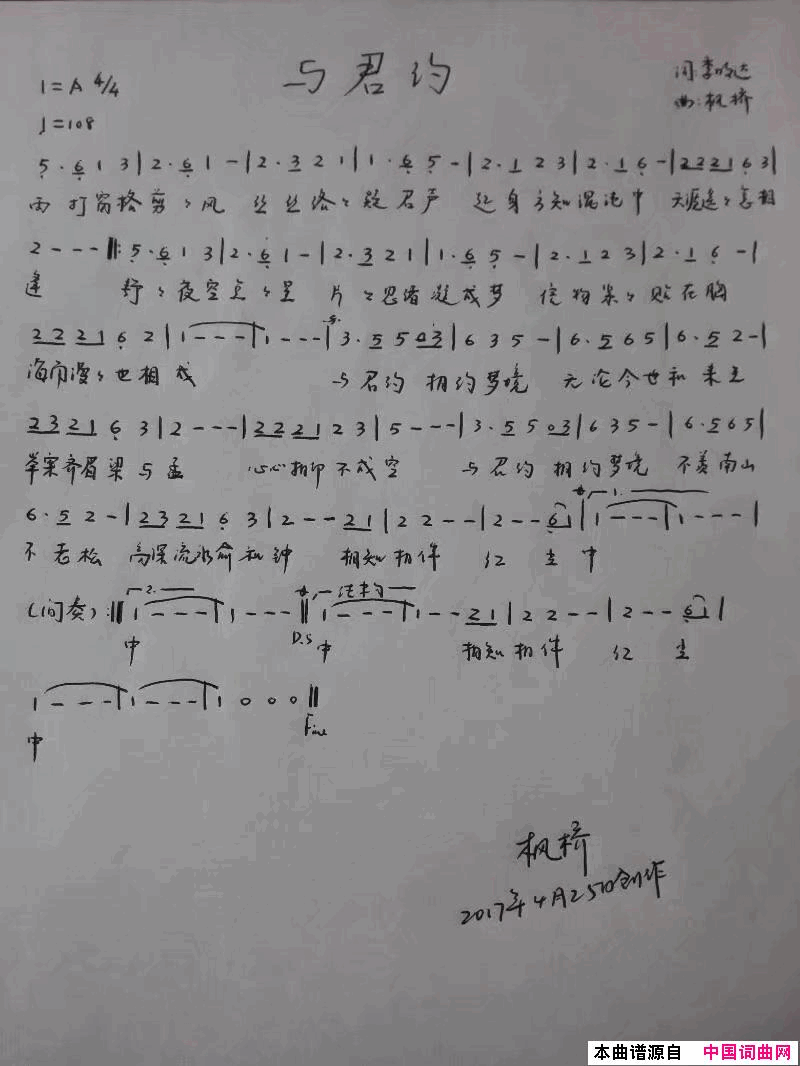 与君约
1=A 4/4
♩=108
词:李
曲:枫桥
5·6 1 3|2·6 1 -|2·3 2 1|1·6 5 -|2·1 2 3|2·1 6 -|2 2 2 1 6 3|
雨打窗格剪々风 丝丝络々疑君声 起身方知混沌中 天涯遥々怎相
2 - - - ‖: 5·6 1 3|2·6 1 -|2·3 2 1|1·6 5 -|2·1 2 3|2·1 6 -|
逢 野々夜空点々星 片々思绪凝成梦 信物 贴在胸
2 2 2 1 6 2|1 - - -|1 - - -|3·5 5 0 3|6 3 5 -|6·5 6 5|6·5 2 -|
海角漫々也相
与君约 相约梦境 无论今世和来生
2 3 2 1 6 3|2 - - -|2 2 2 1 2 3|5 - - -|3·5 5 0 3|6 3 5 -|6·5 6 5|
举案齐眉梁与孟 心心相印不成空 与君约 相约梦境 不羡南山
6·5 2 -|2 3 2 1 6 3|2 - - 2 1|2 2 - -|2 - - 6 1|1. 1 - - -|1 - - -|
不老松 高深流水俞和钟 相知相伴 红尘中
(间奏):‖ 2. 1 - - -|1 - - -‖ 结束 1 - - -|1 - - 2 1|2 2 - -|2 - - 6 1|
中 D.S 中 相知相伴 红尘
1 - - -|1 - - -|1 0 0 0‖
中 Fine
枫桥
2017年4月25日创作
本曲谱源自 中国词曲网